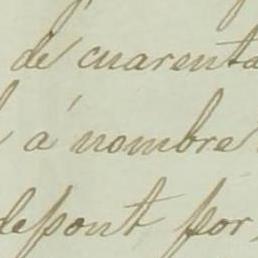 de cuarenta
á nombre
depont por